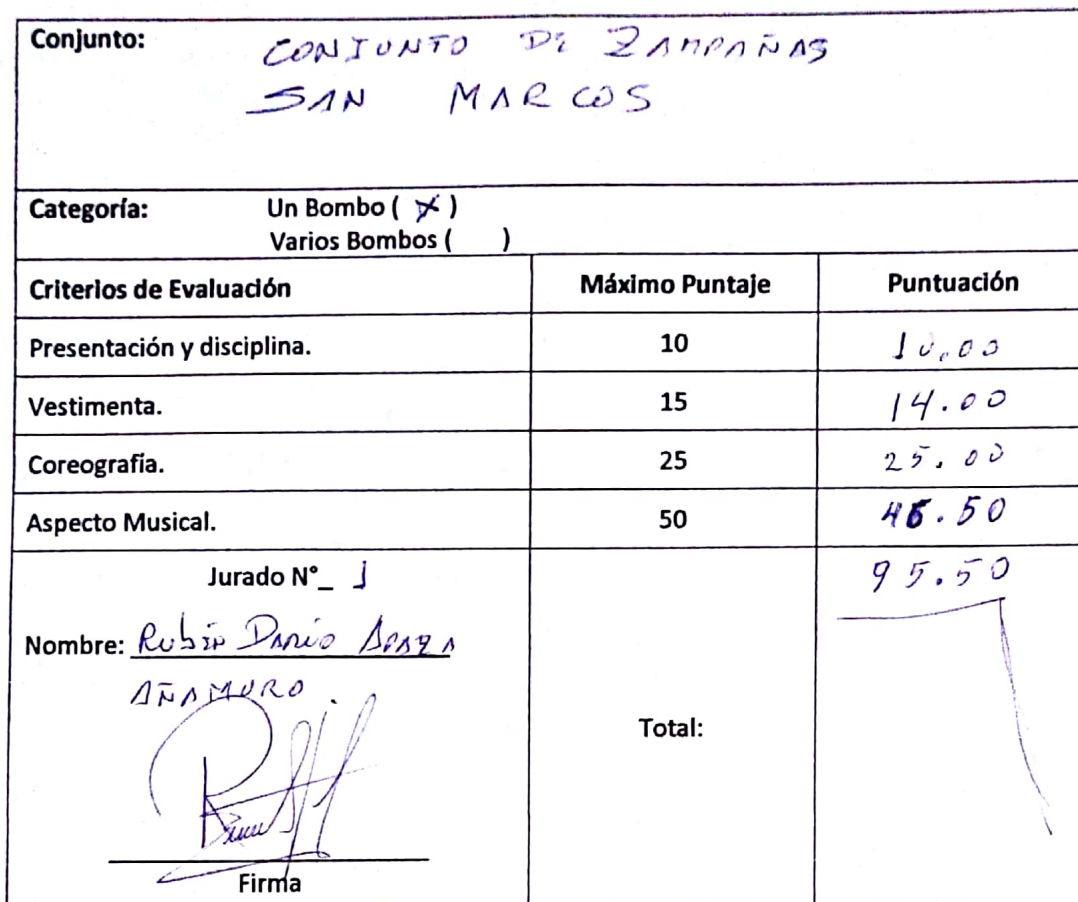 Conjunto: CONJUNTO DE ZAMPAÑAS
SAN MARCOS
Categoría: Un Bombo ( X )
Varios Bombos ( )
Criterios de Evaluación Máximo Puntaje Puntuación
Presentación y disciplina. 10 10.00
Vestimenta. 15 14.00
Coreografía. 25 25.00
Aspecto Musical. 50 46.50
Jurado N°_ 1 95.50
Nombre: Rubén Darío APAZA
AÑAMURO
Total:
Firma